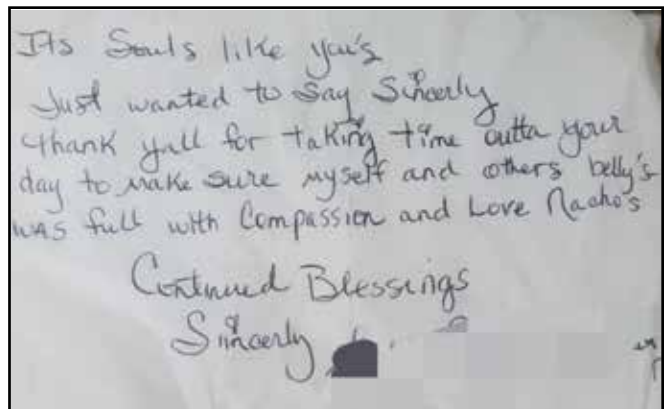 Its Souls like you's
Just wanted to Say Sincerly
thank yall for taking time outta your
day to make sure myself and others belly's
was full with Compassion and Love Nacho's
Continued Blessings
Sincerly